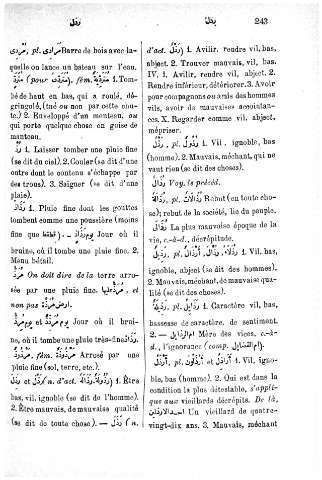 رذل
رذل
243
مرادى .pl ,مردى Barre de bois avec la-
quelle on lance un bateau sur l'eau.
1. Tom-
bé de haut en bas, qui a roulé, dé-
gringolé, (tué ou non par cette chu-
te.) 2. Enveloppé d'un manteau, ou
qui porte quelque chose en guise de
manteau.
رذ 1. Laisser tomber une pluie fine
(se dit du ciel). 2. Couler (se dit d'une
outre dont le contenu s'échappe par
des trous). 3. Saigner (se dit d'une
plaie).
رذاذ 1. Pluie fine dont les gouttes
tombent comme une poussière (moins
fine que قطقط). — يوم رذاذ Jour où il
bruine, où il tombe une pluie fine. 2.
Menu bétail.
On doit dire de la terre arro-
sée par une pluie fine, et
non pas
et Jour où il brui-
ne, où il tombe une pluie très-fine.
fém. Arrosé par une
pluie fine (sol, terre, etc.).
رذل et رذل n. d'act. رذالة, رذولة 1. Être
bas, vil, ignoble (se dit de l'homme).
2. Être mauvais, de mauvaise qualité
(se dit de toute chose). — رذل (n.
d'act. رذل) 1. Avilir, rendre vil, bas,
abject. 2. Trouver mauvais, vil, bas.
IV. 1. Avilir, rendre vil, abject. 2.
Rendre inférieur, détériorer. 3. Avoir
pour compagnons ou amis des hommes
vils, avoir de mauvaises accointan-
ces. X. Regarder comme vil, abject,
mépriser.
رذل pl. رذول 1. Vil, ignoble, bas
(homme). 2. Mauvais, méchant, qui ne
vaut rien (se dit des choses).
رذال Voy. le précéd.
رذالة pl. رذالات Rebut (en toute cho-
se); rebut de la société, lie du peuple.
La plus mauvaise époque de la
vie, c.-à-d., décrépitude.
رذيل pl. أرذال, رذلاء 1. Vil, bas,
ignoble, abject (se dit des hommes).
2. Mauvais, méchant, de mauvaise qua-
lité (se dit des choses).
رذيلة pl. رذايل 1. Caractère vil, bas,
bassesse de caractère, de sentiment.
2. — ام الرذايل Mère des vices, c.-à-
d., l'ignorance (comp. ام الفضايل).
أرذل pl. أرذلون et أراذل 1. Vil, igno-
ble, bas (homme). 2. Qui est dans la
condition la plus détestable, s'appli-
que aux vieillards décrépits. De là,
Un vieillard de quatre-
vingt-dix ans. 3. Mauvais, méchant